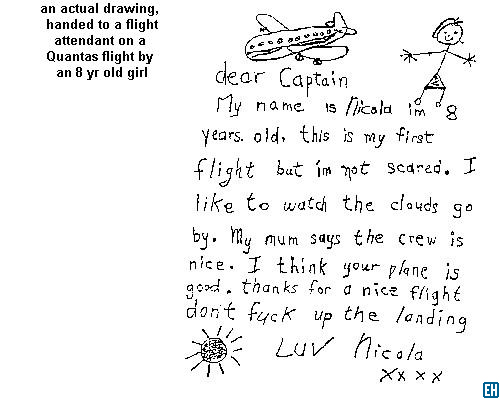 an actual drawing,
handed to a flight
attendant on a
Quantas flight by
an 8 yr old girl
dear Captain
My name is Nicola im 8
years. old, this is my first
flight but im not scared. I
like to watch the clouds go
by. My mum says the crew is
nice. I think your plane is
good. thanks for a nice flight
don't fuck up the landing
LUV Nicola
xxxx
EH